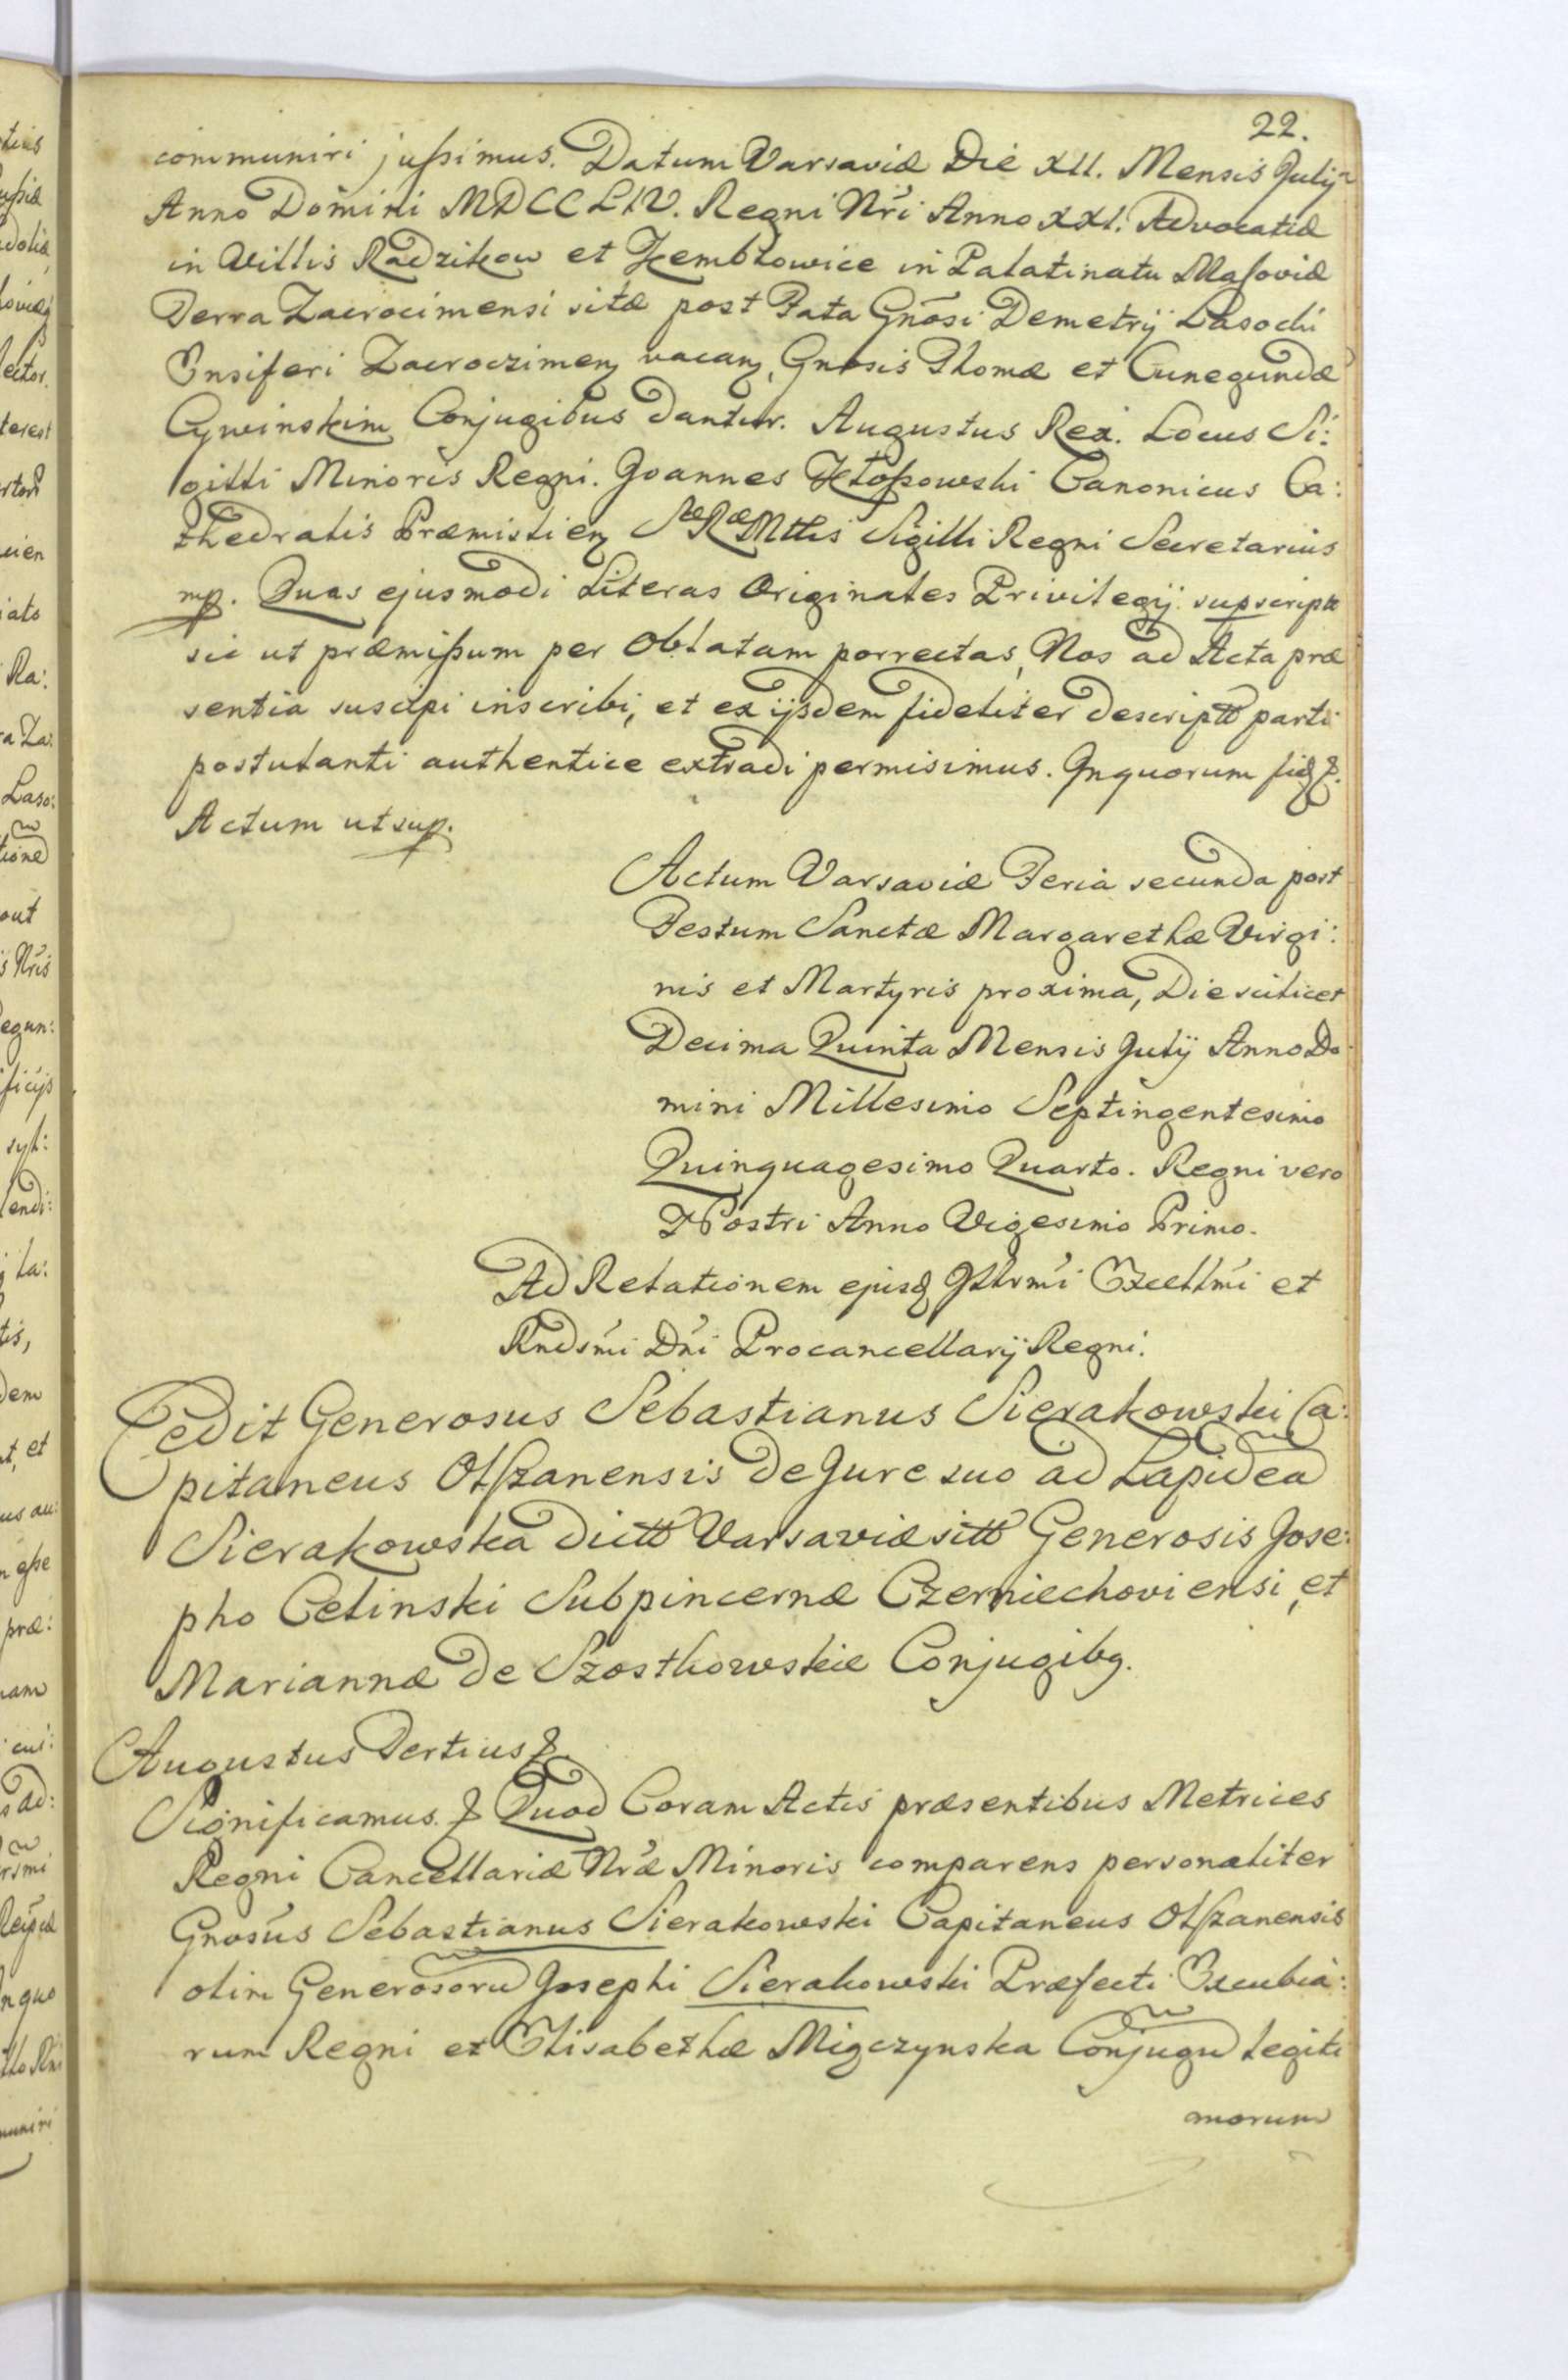 22.
communiri jussimus. Datum Varsaviæ Die XII. Mensis Julij
Anno Domini MDCCLIV. Regni Nri Anno XXI. Advocatiæ
in Villis Radzikow et Zembłowice in Palatinatu Masoviæ
Terra Zacrocimensi sitæ post Fata Gnosi Demetrij Lasocki
Ensiferi Zacroczimen vacan, Gnosis Thomæ et Cunegundæ
Cywinskim Conjugibus dantur. Augustus Rex. Locus Si:
gilli Minoris Regni. Joannes Kłossowski Canonicus Ca:
thedralis Præmislien S RæMttis Sigilli Regni Secretarius
mp. Quas ejusmodi Literas Originales Privilegij supscriptt
sic ut præmissum per Oblatam porrectas, Nos ad Acta præ
sentia suscipi inscribi, et ex ijsdem fideliter descriptt parti
postulanti authentice extradi permisimus. In quorum fid &.
Actum ut sup.
Actum Varsaviæ Feria secunda post
Festum Sanctæ Margarethæ Virgi:
nis et Martyris proxima, Die scilicet
Decima Quinta Mensis Julij Anno Do
mini Millesimo Septingentesimo
Quinquagesimo Quarto. Regni vero
Nostri Anno Vigesimo Primo.
Ad Relationem ejusd Illrmi Excellmi et
Rndsmi Dni Procancellarij Regni.
Cedit Generosus Sebastianus Sierakowski Ca:
pitaneus Olszanensis de Jure suo ad Lapideā
Sierakowska dictt Varsaviæ sitt Generosis Jose:
pho Celinski Subpincernæ Czerniechoviensi, et
Mariannæ de Szostkowskie Conjugibg.
Augustus Tertius &.
Significamus. & Quod Coram Actis præsentibus Metrices
Regni Cancellariæ Nræ Minoris comparens personaliter
Gnosus Sebastianus Sierakowski Capitaneus Olszanensis
olim Generosorū Josephi Sierakowski Præfecti Excubia:
rum Regni et Elisabethæ Migczynska Conjugū legiti
morum